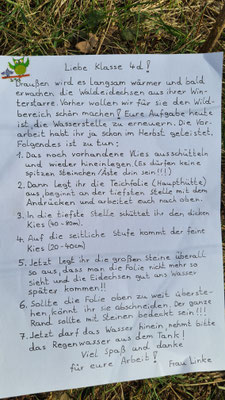 Liebe Klasse 4d!
Draußen wird es langsam wärmer und bald
erwachen die Waldeidechsen aus ihrer Win-
terstarre. Vorher wollen wir für sie den Wild-
bereich schön machen! Eure Aufgabe heute
ist die Wasserstelle zu erneuern. Die Vor-
arbeit habt ihr ja schon im Herbst geleistet.
Folgendes ist zu tun:
1. Das noch vorhandene Vlies ausschütteln
und wieder hineinlegen (Es dürfen keine
spitzen Steinchen/Äste drin sein!!!)
2. Dann legt ihr die Teichfolie (Haupthütte)
aus, beginnt an der tiefsten Stelle mit dem
Andrücken und arbeitet euch nach oben.
3. In die tiefste Stelle schüttet ihr den dicken
Kies (40-80m).
4. Auf die seitliche Stufe kommt der feine
Kies (20-40cm)
5. Jetzt legt ihr die großen Steine überall
so aus, dass man die Folie nicht mehr so
sieht und die Eidechsen gut ans Wasser
später kommen!!!
6. Sollte die Folie oben zu weit überste-
hen, könnt ihr sie abschneiden. Der ganze
Rand sollte mit Steinen bedeckt sein!!!
7. Jetzt darf das Wasser hinein, nehmt bitte
das Regenwasser aus dem Tank!
Viel Spaß und danke
für eure Arbeit!
Frau Linke